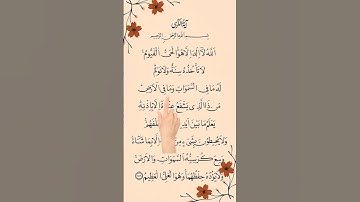 آيَةُ الْكُرْسِيِّ
بِسْمِ اللهِ الرَّحْمٰنِ الرَّحِيْمِ
اَللهُ لَآ اِلٰهَ اِلَّا هُوَ اَلْحَىُّ الْقَيُّوْمُ
لَا تَأْخُذُهُ سِنَةٌ وَّلَا نَوْمٌ
لَهُ مَا فِى السَّمٰوٰتِ وَمَا فِى الْاَرْضِ
مَنْ ذَا الَّذِىْ يَشْفَعُ اِلَّا بِاِذْنِهٖ
يَعْلَمُ مَا بَيْنَ خَلْفَهُمْ
وَلَا يُحِيْطُوْنَ بِشَىْءٍ اِلَّا بِمَا شَآءَ
وَسِعَ كُرْسِيُّهُ السَّمٰوٰتِ وَالْاَرْضَ
وَلَا يَؤُدُهُ حِفْظُهُمَا وَهُوَ الْعَلِىُّ الْعَظِيْمُ